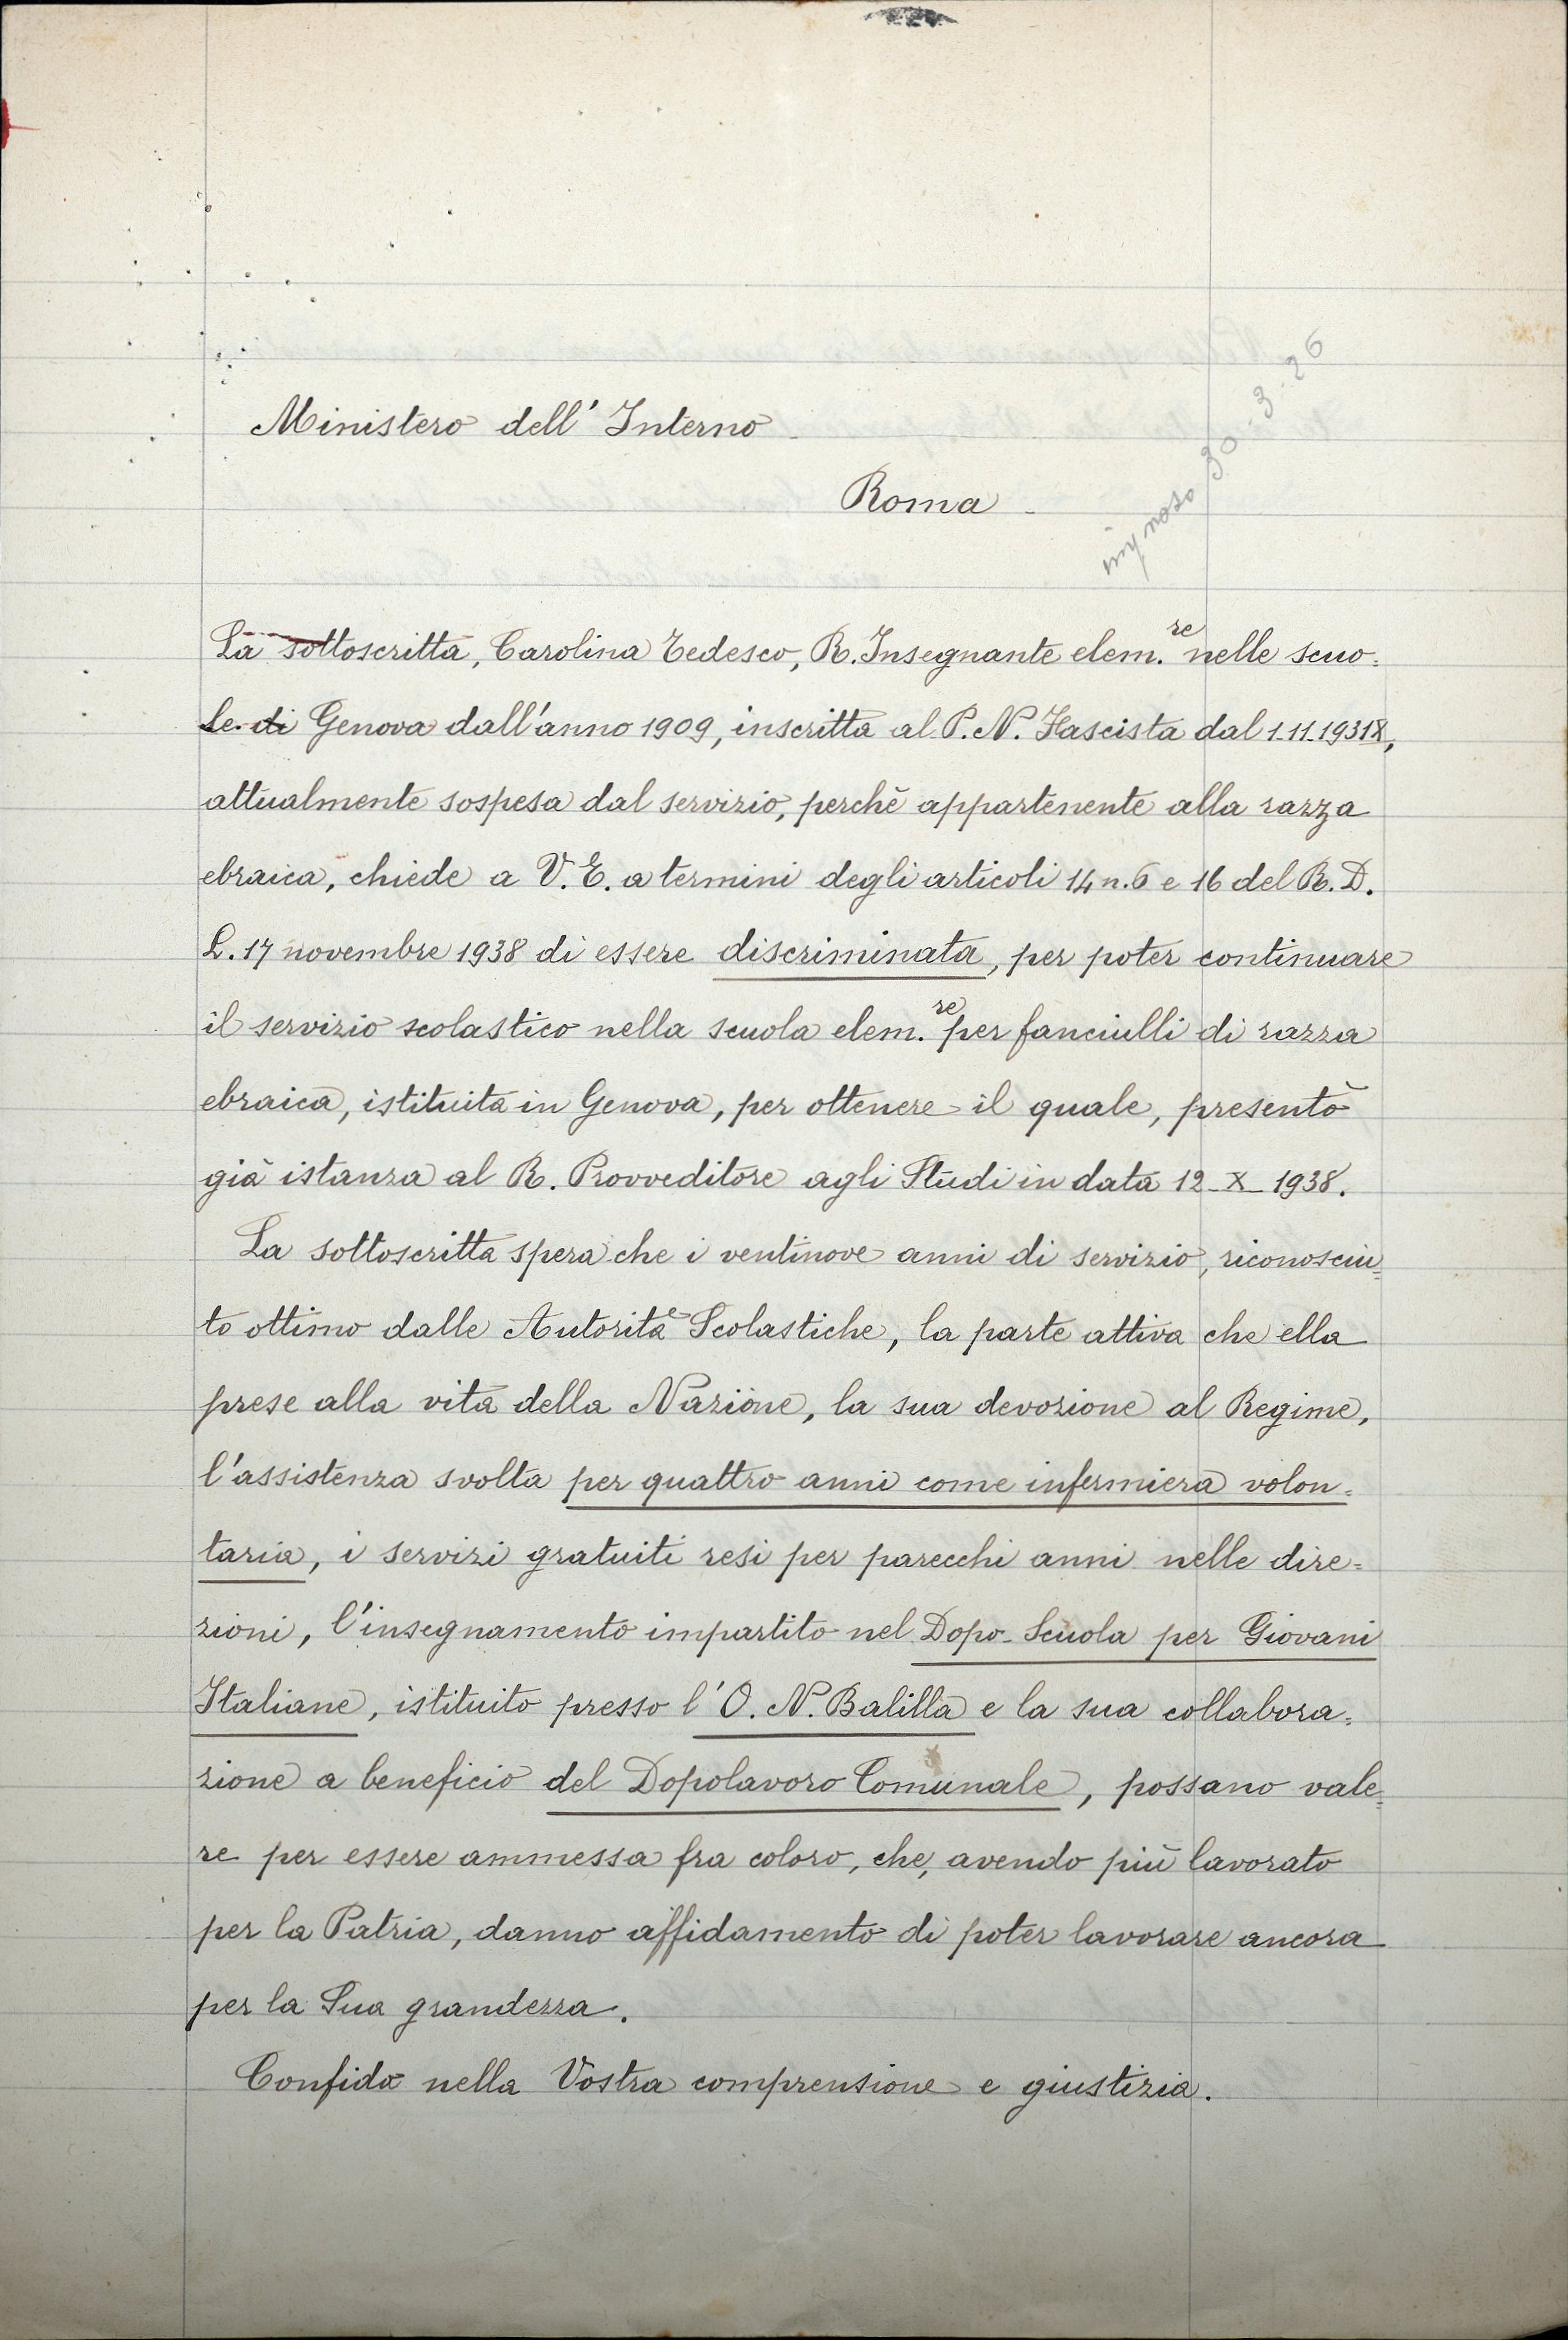 Ministero dell' Interno
Roma
30-3-26
La sottoscritta, Carolina Tedesco, R. Insegnante elem.re nelle scuo=
le di Genova dall'anno 1909, inscritta al P. N. Fascista dal 1-11-1931 X,
attualmente sospesa dal servizio, perchè appartenente alla razza
ebraica, chiede a V. E. a termini degli articoli 14 n. 6 e 16 del R. D.
L. 17 novembre 1938 di essere discriminata, per poter continuare
il servizio scolastico nella scuola elem.re per fanciulli di razza
ebraica, istituita in Genova, per ottenere il quale, presentò
già istanza al R. Provveditore agli Studi in data 12-X-1938.
La sottoscritta spera che i ventinove anni di servizio, riconosciu=
to ottimo dalle Autorità Scolastiche, la parte attiva che ella
prese alla vita della Nazione, la sua devozione al Regime,
l'assistenza svolta per quattro anni come infermiera volon=
taria, i servizi gratuiti resi per parecchi anni nelle dire=
zioni, l'insegnamento impartito nel Dopo-Scuola per Giovani
Italiane, istituito presso l'O. N. Balilla e la sua collabora=
zione a beneficio del Dopolavoro Comunale, possano vale=
re per essere ammessa fra coloro, che, avendo più lavorato
per la Patria, danno affidamento di poter lavorare ancora
per la Sua grandezza.
Confida nella Vostra comprensione e giustizia.